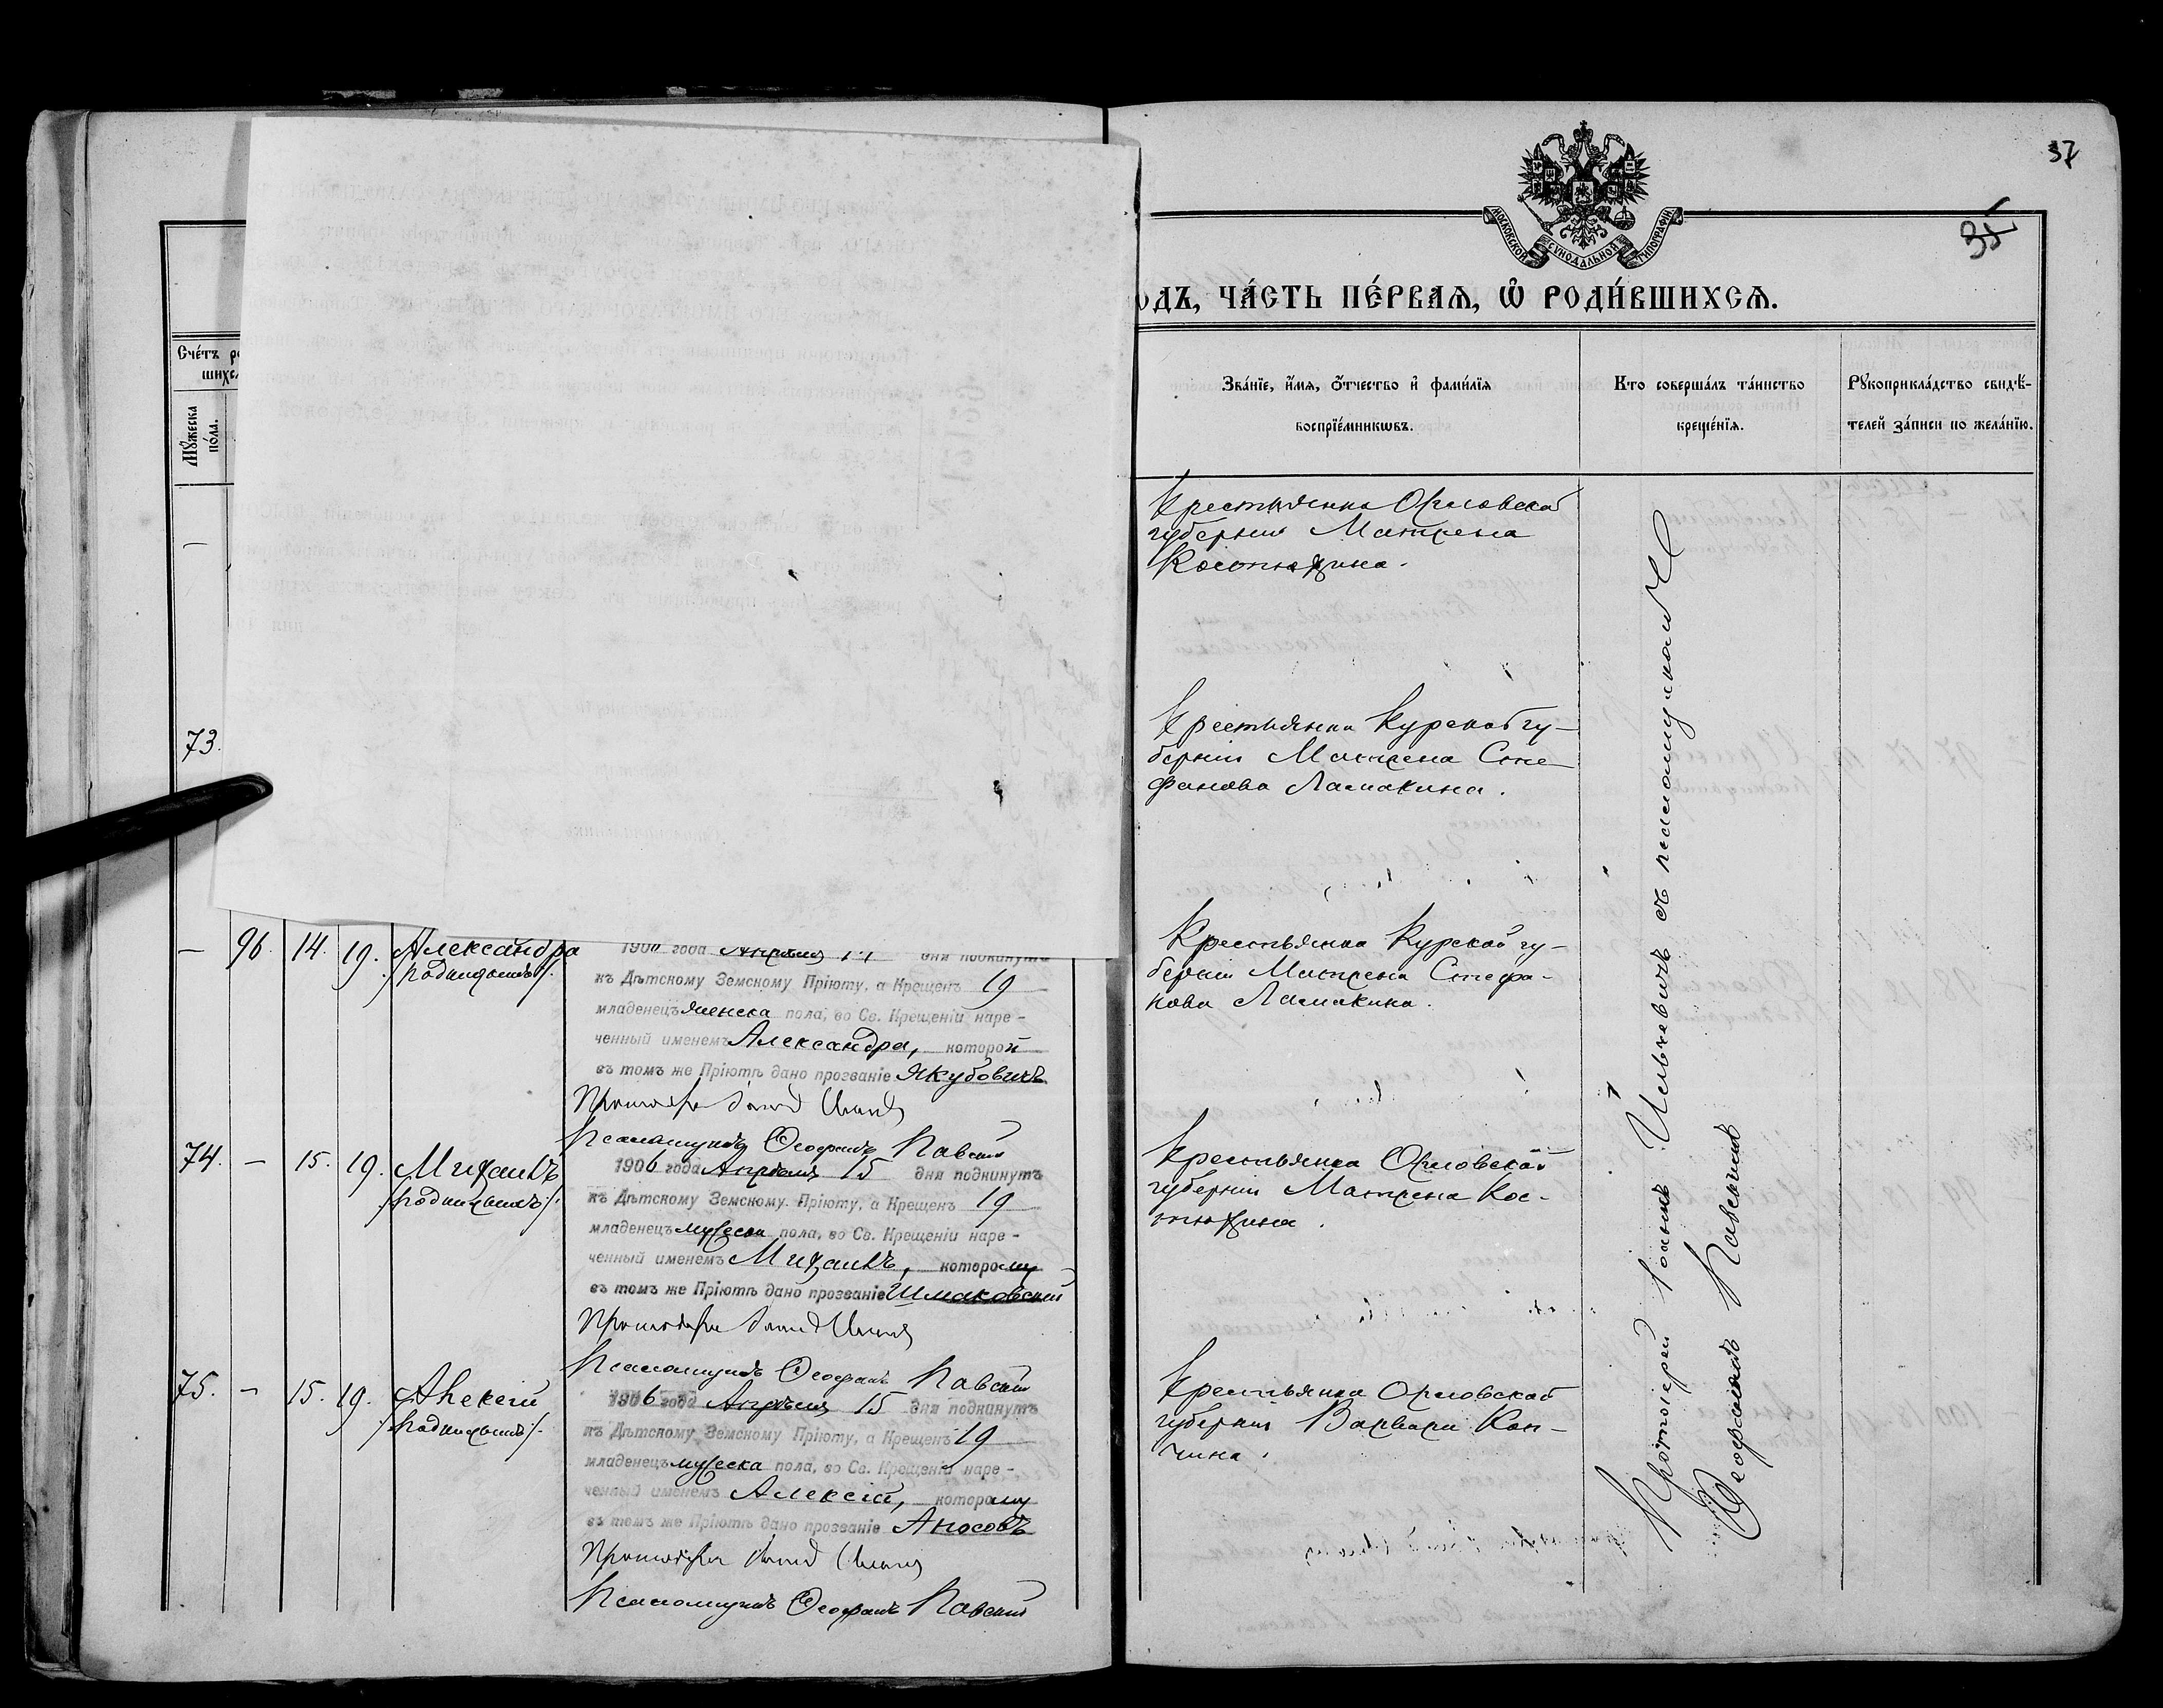 37
35
МОСКОВСКОЙ СѴНОДАЛЬНОЙ ТИПОГРАФІИ
ОДЪ, ЧА́СТЬ ПЕ́РВАѦ, Ѽ РОДИ́ВШИХСѦ.
Сче́тъ
Мꙋ́жеска
по́ла.
Зва́нїе, и҆́мѧ, ѻ҆́тчество и҆ фами́лїѧ
воспрїе́мникѡвъ.
Кто соверша́лъ та́инство
креще́нїѧ.
Рꙋкоприкла́дство свидѣ́-
телей за́писи по жела́нїю.
Крестьянка Орловской
губерніи Матрена
Костюхина.
73.
Крестьянка Курской гу-
берніи Матрена Сте
фанова Ламакина.
— 96. 14. 19. Александра
/подкидышъ/.
1906 года Апрѣля 14 дня подкинутъ
къ Дѣтскому Земскому Пріюту, а Крещенъ 19
младенецъ женска пола, во Св. Крещеніи наре-
ченный именемъ Александра, которой
въ томъ же Пріютѣ дано прозваніе Якубовичъ
Псаломщикъ Ѳеофанъ Павскій
Крестьянка Курской гу-
берніи Матрена Стефа-
нова Ламакина.
74. — 15. 19. Михаилъ
/подкидышъ/.
1906 года Апрѣля 15 дня подкинутъ
къ Дѣтскому Земскому Пріюту, а Крещенъ 19
младенецъ мужеска пола, во Св. Крещеніи наре-
ченный именемъ Михаилъ, которому
въ томъ же Пріютѣ дано прозваніе Шмаковскій
Псаломщикъ Ѳеофанъ Павскій
Крестьянка Орловской
губерніи Матрена Кос-
тюхина.
75. — 15. 19. Алексій
/подкидышъ/.
1906 года Апрѣля 15 дня подкинутъ
къ Дѣтскому Земскому Пріюту, а Крещенъ 19
младенецъ мужеска пола, во Св. Крещеніи наре-
ченный именемъ Алексій, которому
въ томъ же Пріютѣ дано прозваніе Аносовъ
Псаломщикъ Ѳеофанъ Павскій
Крестьянка Орловской
губерніи Варвара Кон-
чина.
Протоіерей Іоаннъ съ псаломщикомъ
Ѳеофаномъ Павскимъ